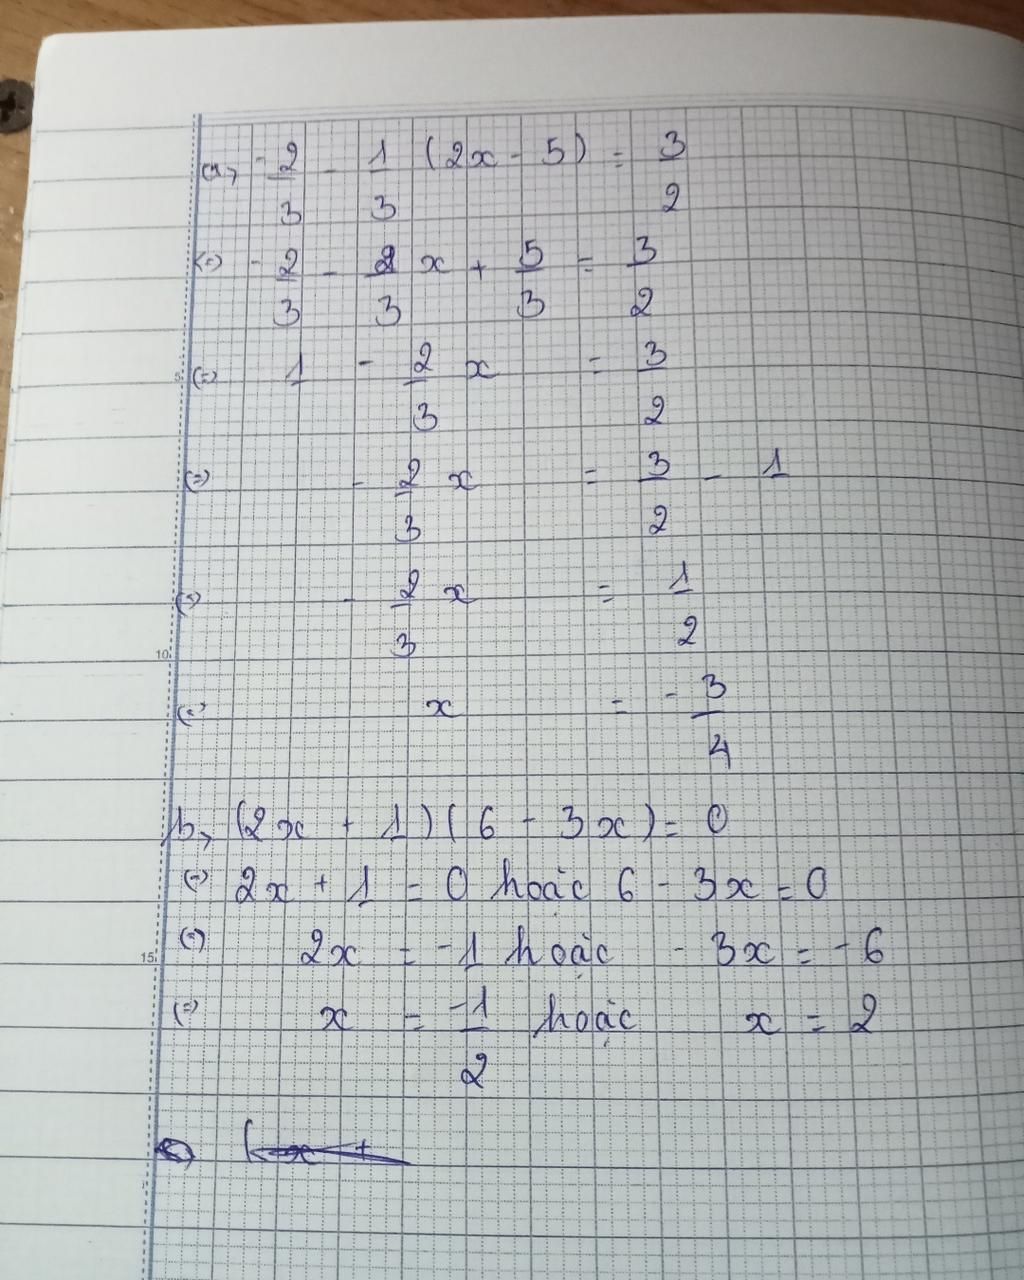 a, -2/3 - 1/3 (2x - 5) = 3/2
<=> -2/3 - 2/3 x + 5/3 = 3/2
(=) 1 - 2/3 x = 3/2
(=) - 2/3 x = 3/2 - 1
(=) - 2/3 x = 1/2
(=) x = - 3/4
b, (2x + 1)(6 - 3x) = 0
(=) 2x + 1 = 0 hoặc 6 - 3x = 0
(=) 2x = -1 hoặc - 3x = -6
(=) x = -1/2 hoặc x = 2
5
10
15